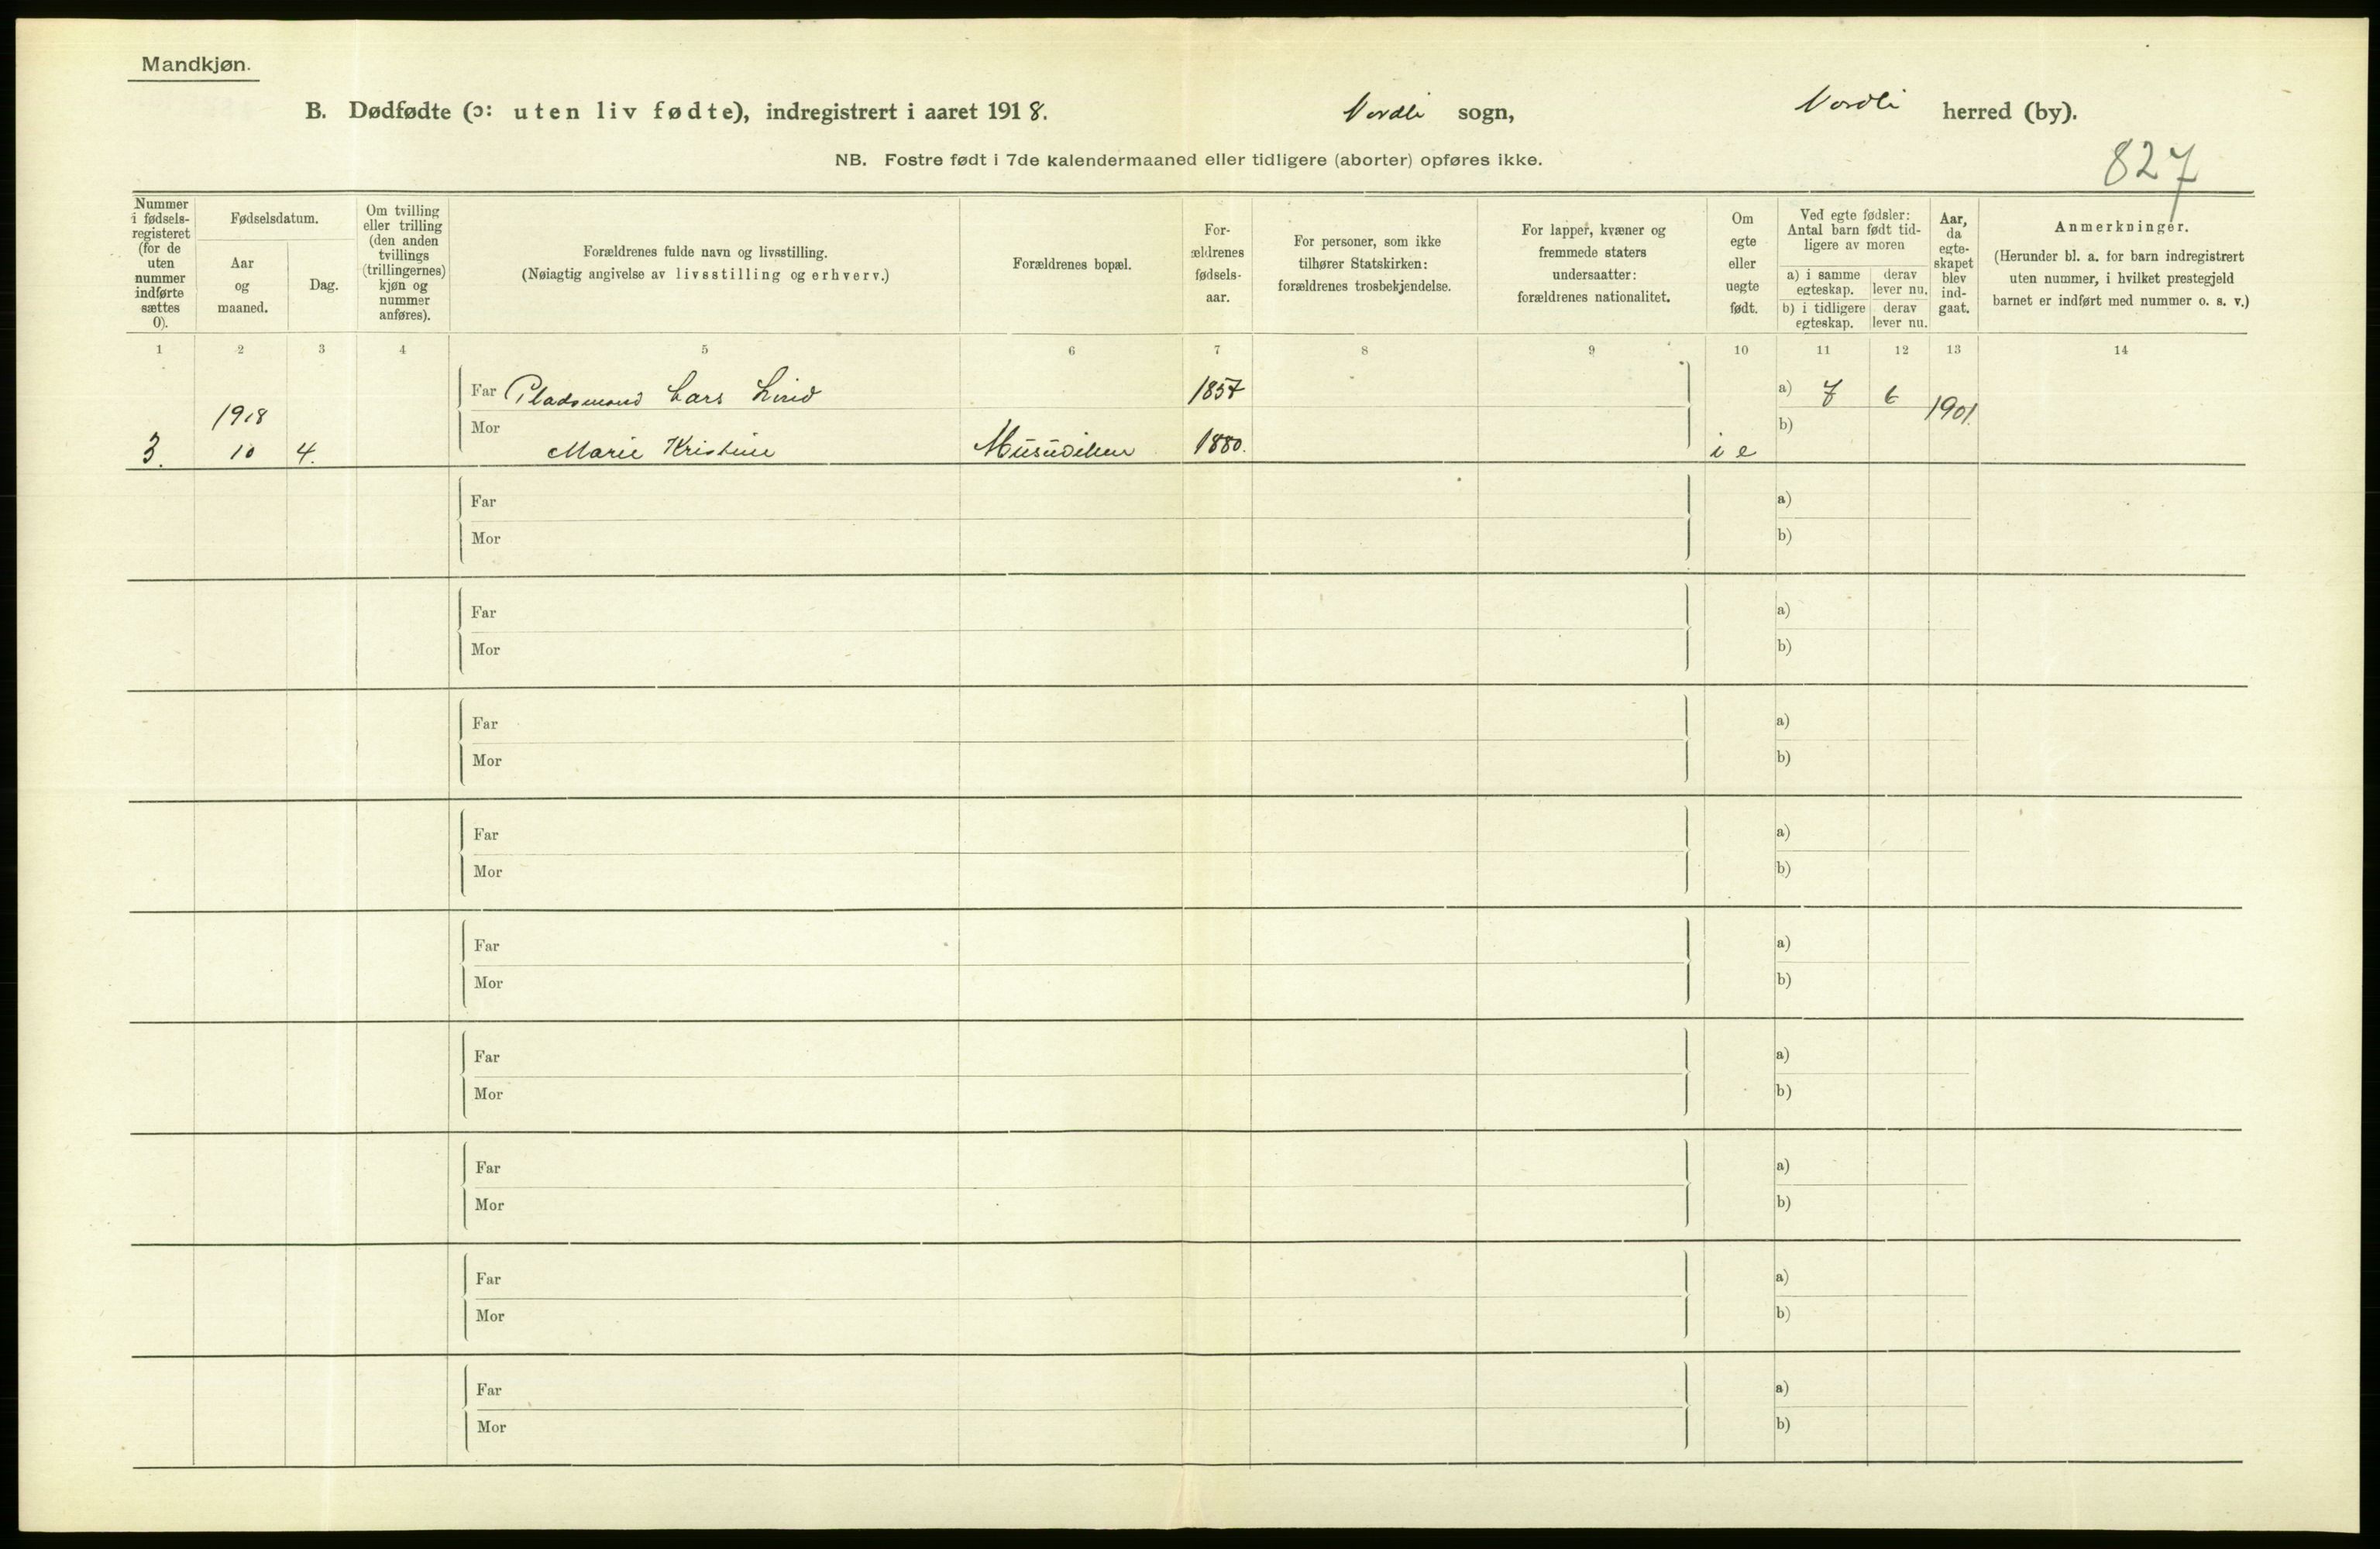 Mandkjøn.
B. Dødfødte (ɔ: uten liv fødte), indregistrert i aaret 1918. Nordli sogn, Nordli herred (by).
NB. Fostre født i 7de kalendermaaned eller tidligere (aborter) opføres ikke.
827
Nummer i fødsels-registeret (for de uten nummer indførte sættes 0).
Fødselsdatum.
Aar og maaned.
Dag.
Om tvilling eller trilling (den anden tvillings (trillingernes) kjøn og nummer anføres).
Forældrenes fulde navn og livsstilling.
(Nøiagtig angivelse av livsstilling og erhverv.)
Forældrenes bopæl.
For-ældrenes fødsels-aar.
For personer, som ikke tilhører Statskirken: forældrenes trosbekjendelse.
For lapper, kvæner og fremmede staters undersaatter: forældrenes nationalitet.
Om egte eller uegte født.
Ved egte fødsler: Antal barn født tid-ligere av moren
a) i samme egteskap.
derav lever nu.
b) i tidligere egteskap.
derav lever nu.
Aar, da egte-skapet blev ind-gaat.
Anmerkninger.
(Herunder bl. a. for barn indregistrert uten nummer, i hvilket prestegjeld barnet er indført med nummer o. s. v.)
1 2 3 4 5 6 7 8 9 10 11 12 13 14
Far Pladsmand Lars Lind 1857 a) 7 6 1901.
1918
Mor b)
3. 10 4. Marie Kristine 1880. i e
Far a)
Mor b)
Far a)
Mor b)
Far a)
Mor b)
Far a)
Mor b)
Far a)
Mor b)
Far a)
Mor b)
Far a)
Mor b)
Far a)
Mor b)
Far a)
Mor b)